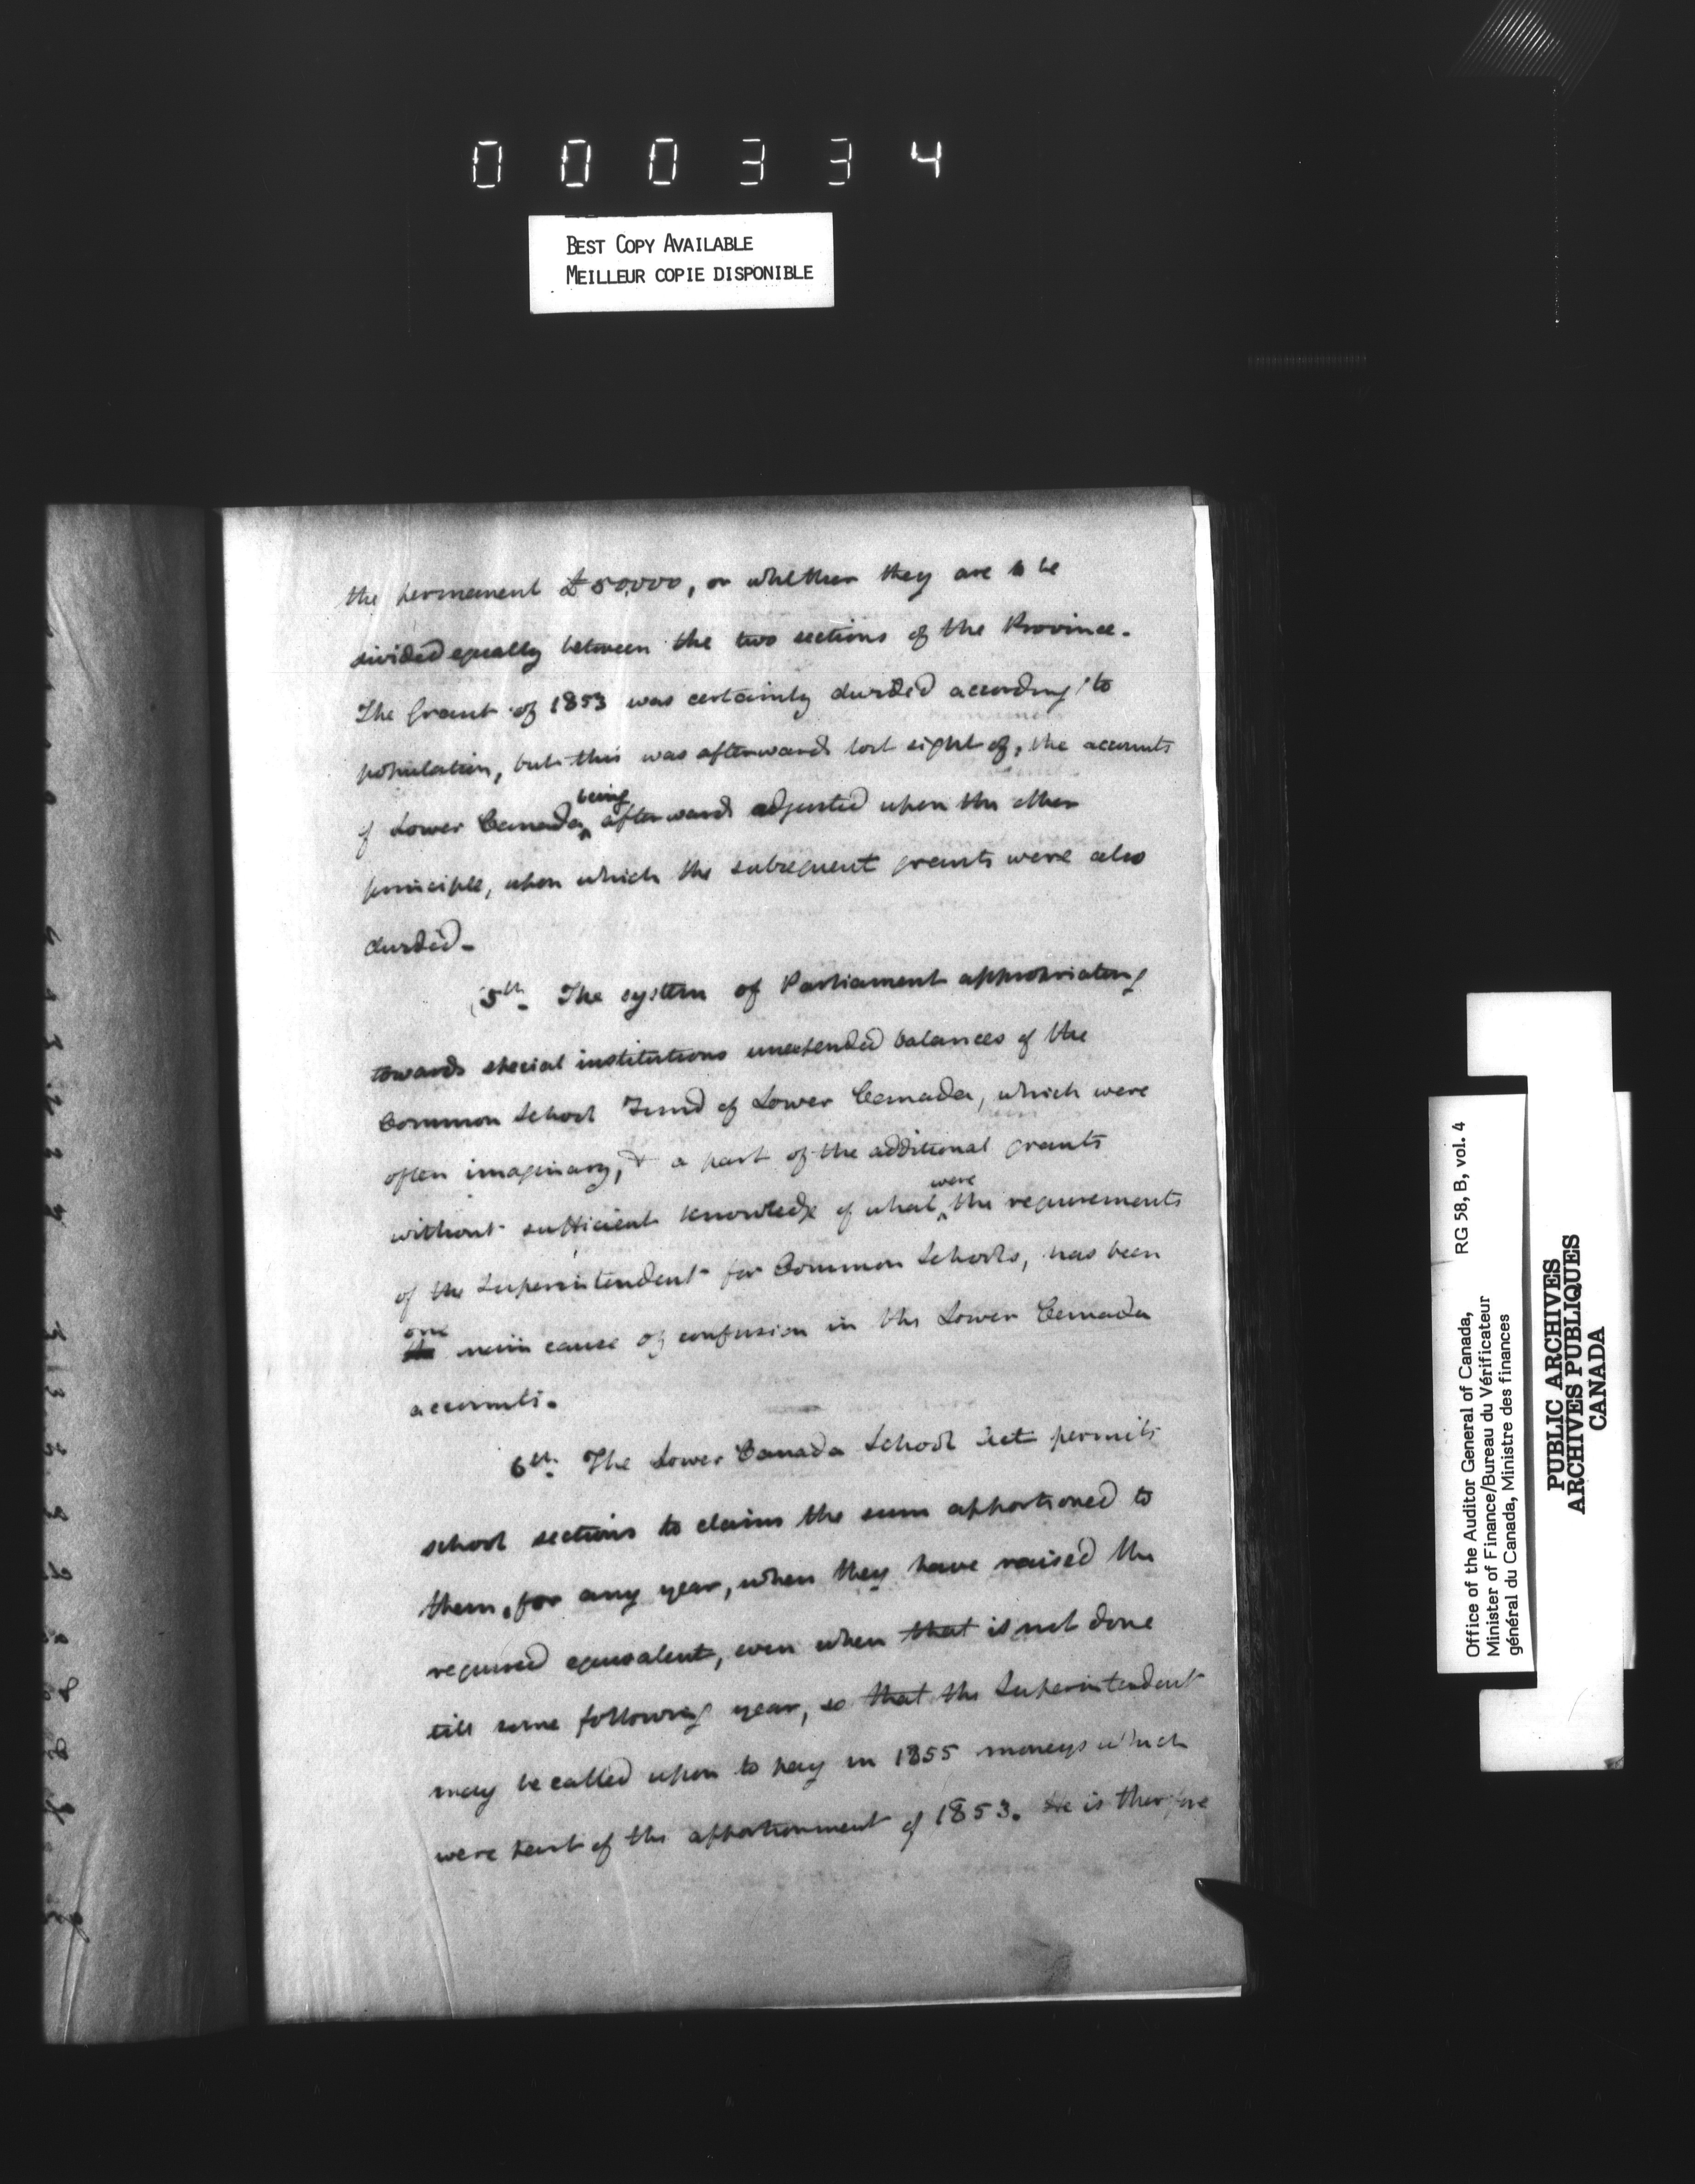 000334
BEST COPY AVAILABLE
MEILLEUR COPIE DISPONIBLE
the permanent £50,000, or whether they are to be
divided equally between the two sections of the Province.
The Grant of 1853 was certainly divided according to
population, but this was afterwards lost sight of, the accounts
of Lower Canada being afterwards adjusted upon the other
principle, upon which the subsequent grants were also
divided.
5th. The system of Parliament appropriating
towards special institutions unexpended balances of the
Common School Fund of Lower Canada, which were
often imaginary, & a part of the additional grants
without sufficient knowledge of what were the requirements
of the Superintendent for Common Schools, has been
one main cause of confusion in the Lower Canada
accounts.
6th. The Lower Canada School Act permits
school sections to claim the sum apportioned to
them, for any year, when they have raised the
required equivalent, even when that is not done
till some following year, so that the Superintendent
may be called upon to pay in 1855 moneys which
were part of the apportionment of 1853. He is therefore
Office of the Auditor General of Canada, RG 58, B, vol. 4
Minister of Finance/Bureau du Vérificateur
général du Canada, Ministre des finances
PUBLIC ARCHIVES
ARCHIVES PUBLIQUES
CANADA